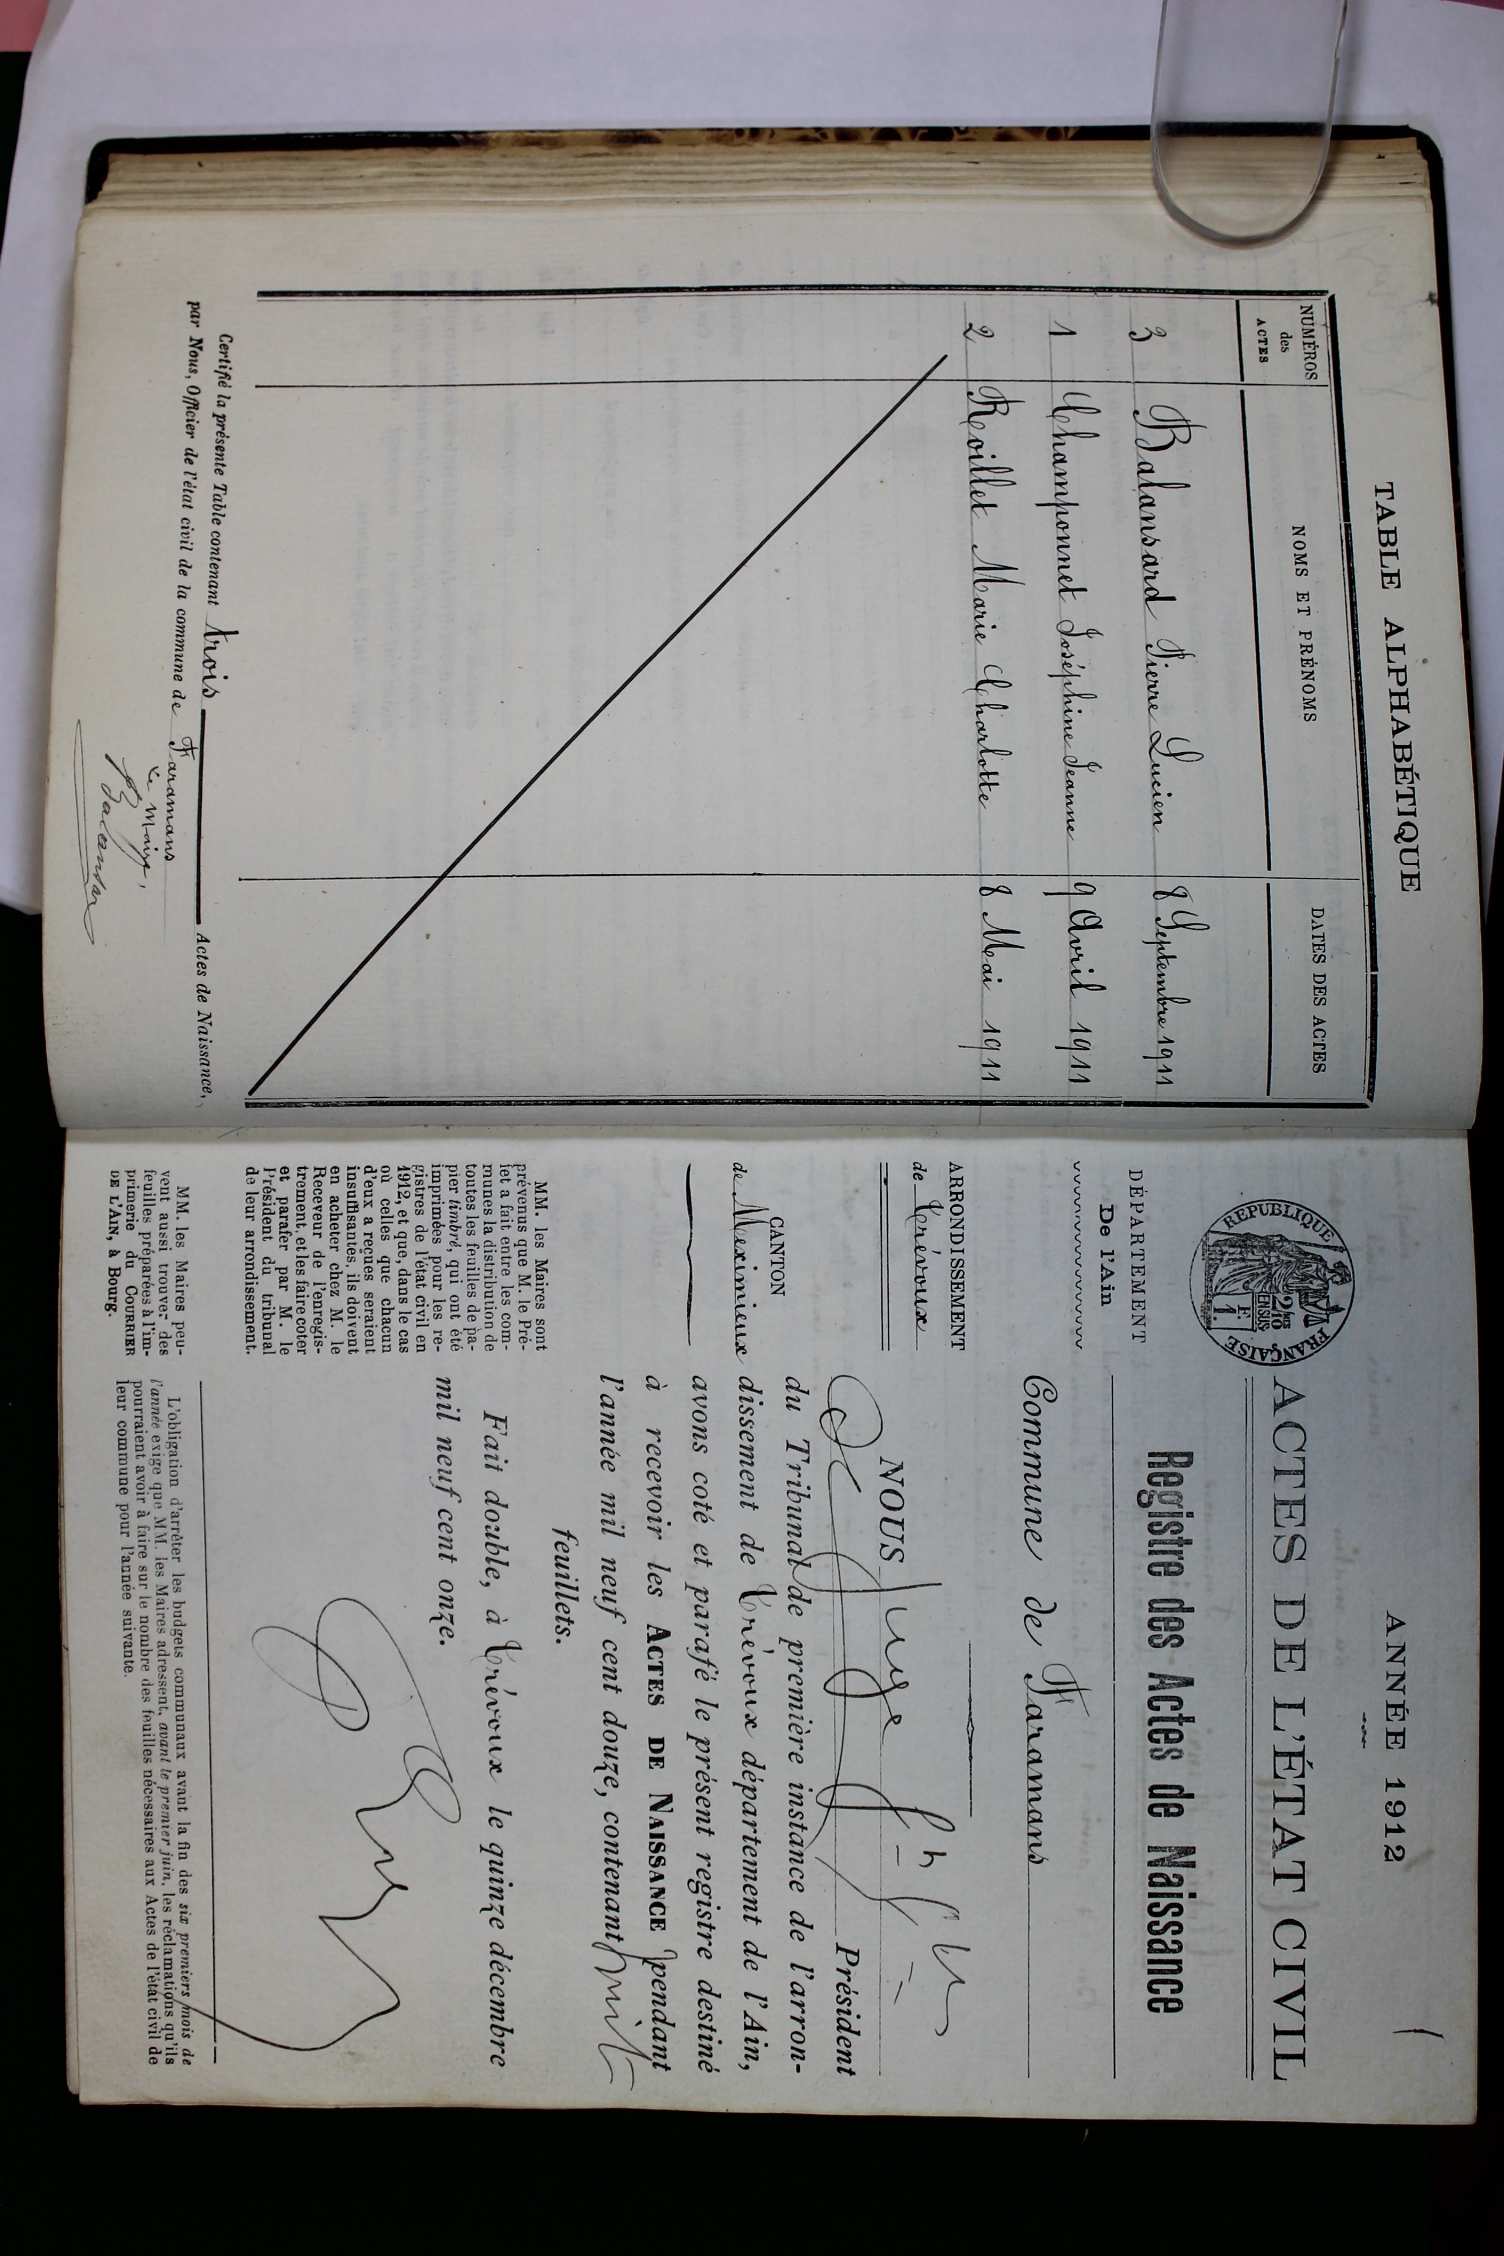 TABLE ALPHABÉTIQUE
NUMÉROS des ACTES
NOMS ET PRÉNOMS
DATES DES ACTES
3 Balansard Pierre Lucien 8 Septembre 1911
1 Champonnet Joséphine Jeanne 9 Avril 1911
2 Roillet Marie Charlotte 8 Mai 1911
Certifié la présente Table contenant trois Actes de Naissance,
par Nous, Officier de l'état civil de la commune de Faramans
Le Maire,
ANNÉE 1912
RÉPUBLIQUE FRANÇAISE
2/10 EN SUS
1 F.
ACTES DE L'ÉTAT CIVIL
Registre des Actes de Naissance
DÉPARTEMENT
De l'Ain
ARRONDISSEMENT
de Trévoux
CANTON
de Meximieux
MM. les Maires sont
prévenus que M. le Pré-
fet a fait entre les com-
munes la distribution de
toutes les feuilles de pa-
pier timbré, qui ont été
imprimées pour les re-
gistres de l'état civil en
1912, et que, dans le cas
où celles que chacun
d'eux a reçues seraient
insuffisantes, ils doivent
en acheter chez M. le
Receveur de l'enregis-
trement, et les faire coter
et parafer par M. le
Président du tribunal
de leur arrondissement.
MM. les Maires peu-
vent aussi trouver des
feuilles préparées à l'im-
primerie du COURRIER
DE L'AIN, à Bourg.
Commune de Faramans
NOUS Juge
Président
du Tribunal de première instance de l'arron-
dissement de Trévoux département de l'Ain,
avons coté et parafé le présent registre destiné
à recevoir les ACTES DE NAISSANCE pendant
l'année mil neuf cent douze, contenant huit
feuillets.
Fait double, à Trévoux le quinze décembre
mil neuf cent onze.
L'obligation d'arrêter les budgets communaux avant la fin des six premiers mois de
l'année exige que MM. les Maires adressent, avant le premier juin, les réclamations qu'ils
pourraient avoir à faire sur le nombre des feuilles nécessaires aux Actes de l'état civil de
leur commune pour l'année suivante.